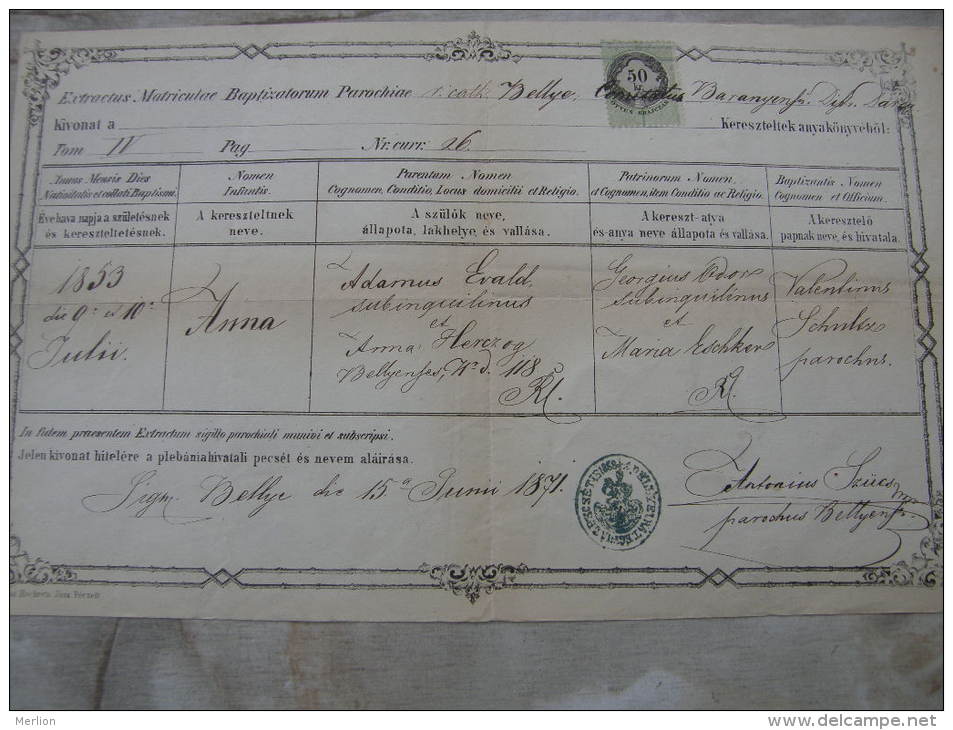 50
Extractus Matriculae Baptizatorum Parochiae r: cath. Bellye, Comitatus Baranyens. Distr. Darda
Kivonat a Kereszteltek anyakönyvéből:
Tom IV Pag Nr. curr: 26.
Annus Mensis Dies
Nativitatis et collati Baptismi.
Nomen
Infantis.
Parentum Nomen
Cognomen, Conditio, Locus domicilii et Religio.
Patrinorum Nomen,
et Cognomen, item Conditio ac Religio.
Baptizantis Nomen
Cognomen et Officium.
Éve hava napja a születésnek
és kereszteltetésnek.
A kereszteltnek
neve.
A szülők neve,
állapota, lakhelye és vallása.
A kereszt-atya
és-anya neve állapota és vallása.
A keresztelő
papnak neve, és hivatala.
1853
die 9a et 10a
Julii.
Anna
Adamus Evald,
subinquilinus
et
Anna Herczog
Bellyenses, Nr d. 118
Rl.
Georgius
subinquilinus
et
Maria Eschker
Rl.
Valentinus
Schultz
parochus.
In fidem praesentem Extractum sigillo parochiali munivi et subscripsi.
Jelen kivonat hitelére a plebániahivatali pecsét és nevem aláírása.
Sigm. Bellye die 15a Junii 1871.
Antonius Szücs
parochus Bellyens.
Merlion
http://www.delcampe.net